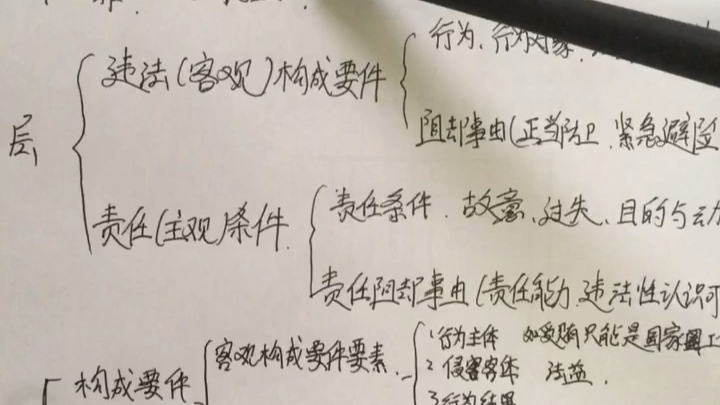 行为、行为对象
违法(客观)构成要件
阻却事由(正当防卫、紧急避险
层
责任条件、故意、过失、目的与动
责任(主观)条件
责任阻却事由(责任能力、违法性认识可
1 行为主体 如受贿只能是国家
客观构成要件要素
2 侵害客体 法益.
构成要件
3 行为结果